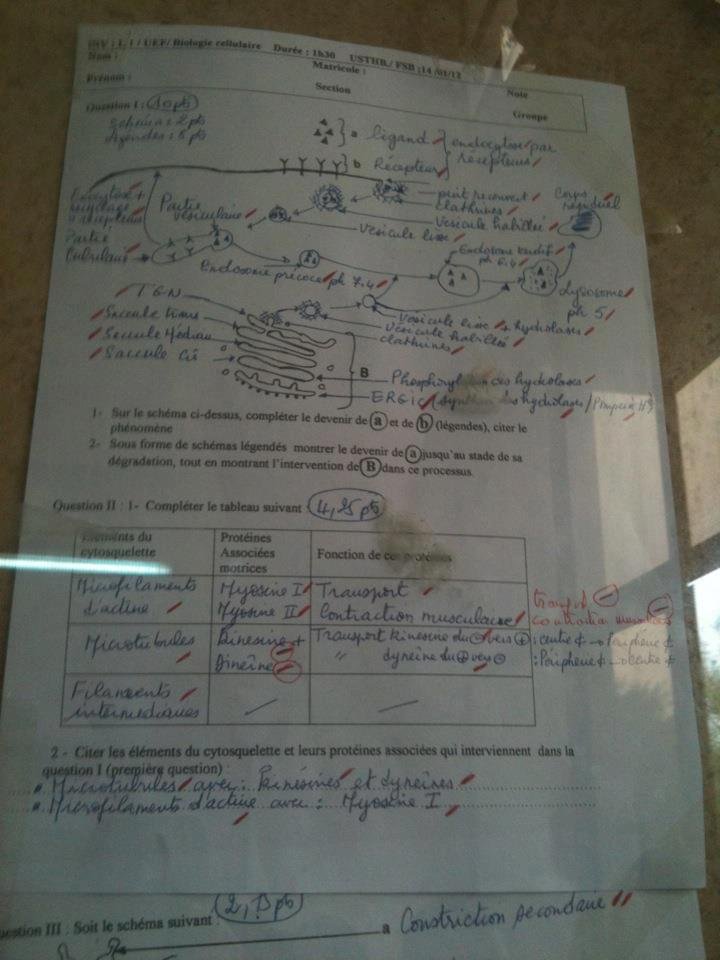 L1 / UEF/ Biologie cellulaire Durée : 1h30 USTHB / FSB :14 /01/12
Nom : Matricule : Note
Prénom : Section Groupe
Question I : 10 pts
Schéma : 2 pts
légendes : 8 pts
a ligand endocytose par
b Récepteur récepteurs
puit recouvert
clathrines
Corps résiduel
vésicule habillée
vésicule lisse
Exocytose +
recyclage
récepteurs
Partie
vésiculaire
Partie
tubulaire
Endosome précoce ph 7.4
Endosome tardif
ph 6.4
Lysosome
ph 5
TGN
Saccule trans
Saccule Médian
Saccule Cis
vésicule lisse + hydrolases
vésicule habillée
clathrines
B
Phosphorylation des hydrolases
ERGIC
1- Sur le schéma ci-dessus, compléter le devenir de a et de b (légendes), citer le
phénomène
2- Sous forme de schémas légendés montrer le devenir de a jusqu'au stade de sa
dégradation, tout en montrant l'intervention de B dans ce processus.
Question II : 1- Compléter le tableau suivant : 4,25 pts
Eléments du cytosquelette
Protéines Associées motrices
Fonction de ces protéines
Microfilaments d'actine
Myosine I Transport
Myosine II Contraction musculaire
transport
contraction musculaire
Microtubules
Kinésine + Transport kinesine du ⊖ vers ⊕ : centre ¢ → Périphérie ¢
Dinéine " dyneine du ⊕ vers ⊖ : Périphérie ¢ → centre ¢
Filaments
intermédiaires
2 - Citer les éléments du cytosquelette et leurs protéines associées qui interviennent dans la
question I (première question) :
Microtubules avec : Kinésines et dyneines
Microfilaments d'actine avec : Myosine I
Question III : Soit le schéma suivant :
a Constriction secondaire